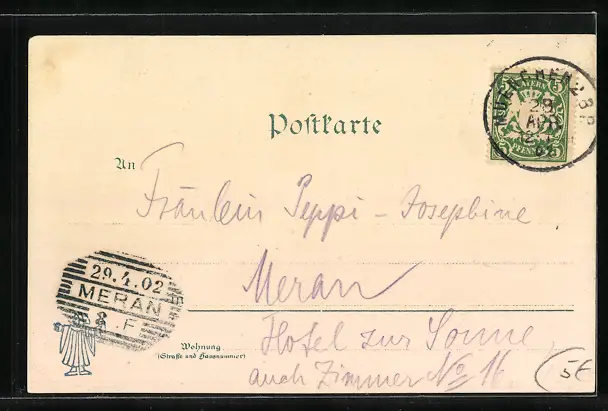 MUENCHEN 2 B.P.
BAYERN
5 5
28
APR
12-1
02
5 PFENNIG 5
Postkarte
An
Fräulein Peppi - Josephine
Meran
29.4.02
MERAN
F
Wohnung
(Straße und Hausnummer)
Hotel zur Sonne
auch Zimmer No 16
5E